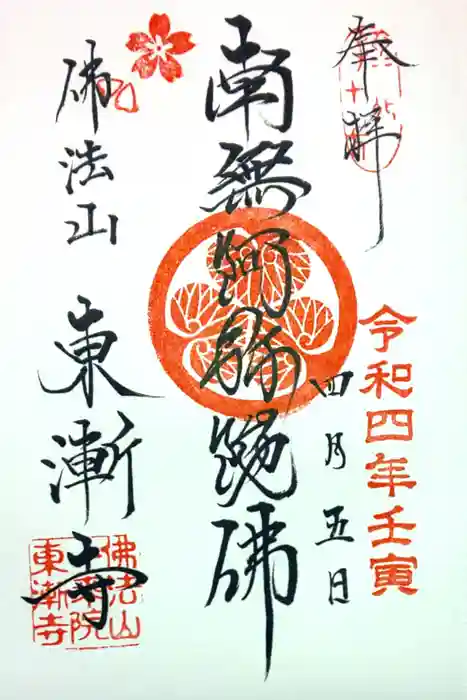 奉拝
令和四年壬寅
四月五日
南無阿弥陀佛
佛法山
東漸寺
佛法山
一乗院
東漸寺